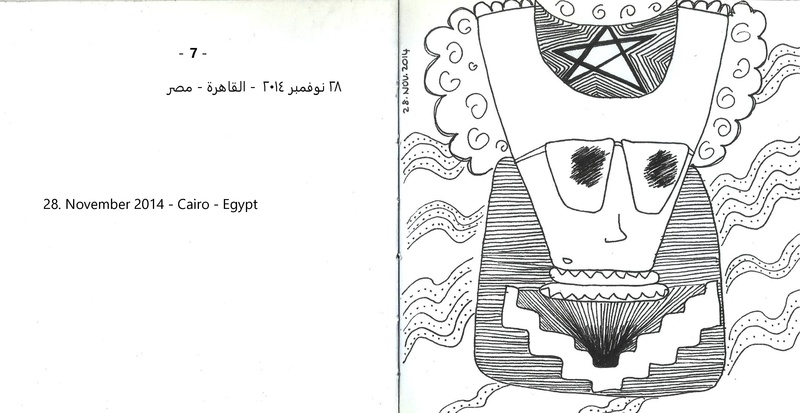 - 7 -
٢٨ نوفمبر ٢٠١٤ - القاهرة - مصر
28. November 2014 - Cairo - Egypt
28. NOV. 2014